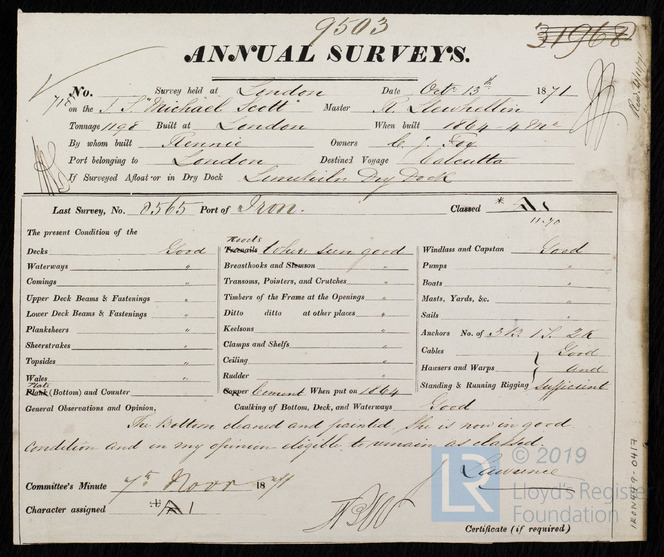 9503
31968
ANNUAL SURVEYS.
No. Survey held at London Date Octr 13th 1871
on the S.S "Michael Scott" Master R. Llewhellin
Tonnage 1198 Built at London When built 1864 - 4 Mo
By whom built Rennie Owners C. J. Fox
Port belonging to London Destined Voyage Calcutta
If Surveyed Afloat or in Dry Dock Dry Dock
Last Survey, No. 8565 Port of Iron. Classed A1
11.70
The present Condition of the
Decks Good
Waterways "
Comings "
Upper Deck Beams & Fastenings "
Lower Deck Beams & Fastenings "
Planksheers "
Sheerstrakes "
Topsides "
Wales "
Plank (Bottom) and Counter "
Treenails where seen good
Breasthooks and Stemson "
Transoms, Pointers, and Crutches "
Timbers of the Frame at the Openings "
Ditto ditto at other places "
Keelsons "
Clamps and Shelfs "
Ceiling "
Rudder "
Copper Cement When put on 1864
Windlass and Capstan Good
Pumps "
Boats "
Masts, Yards, &c. "
Sails "
Anchors No. of 3 B. 1 S. 2 K
Cables Good
Hawsers and Warps and
Standing & Running Rigging Sufficient
General Observations and Opinion, Caulking of Bottom, Deck, and Waterways Good
The Bottom cleaned and painted. She is now in good
condition and in my opinion eligible to remain as classed.
J. Lawrence
Committee's Minute 7th Novr 1871
Character assigned A1
Certificate (if required)
IRON479-0417
© 2019
LR
Lloyd's Register
Foundation